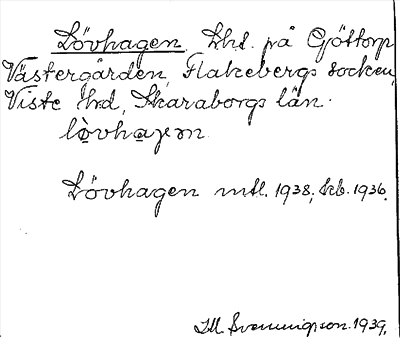 Lövhagen. Lht. på Gjöttorp
Västergården, Flakebergs socken,
Viste hrd, Skaraborgs län.
lòvhaɡen
Lövhagen mtl. 1938, kb. 1936.
Svenningson. 1939.